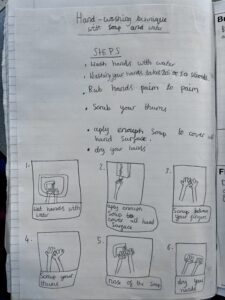 Hand-washing technique
with soap and water
STEPS
• Wash hands with water
• Washing your hands takes 20 or 30 seconds
• Rub hands palm to palm
• Scrub your thums
• aply enough soap to cover all
hand surface.
• dry your hands
1.
2.
3.
Wet hands with
water
aply enough
soap to
cover all hand
surface
Scrup between
your fingers
4.
5.
6.
Scrup your
thums
rinse of the soap
dry your
hands